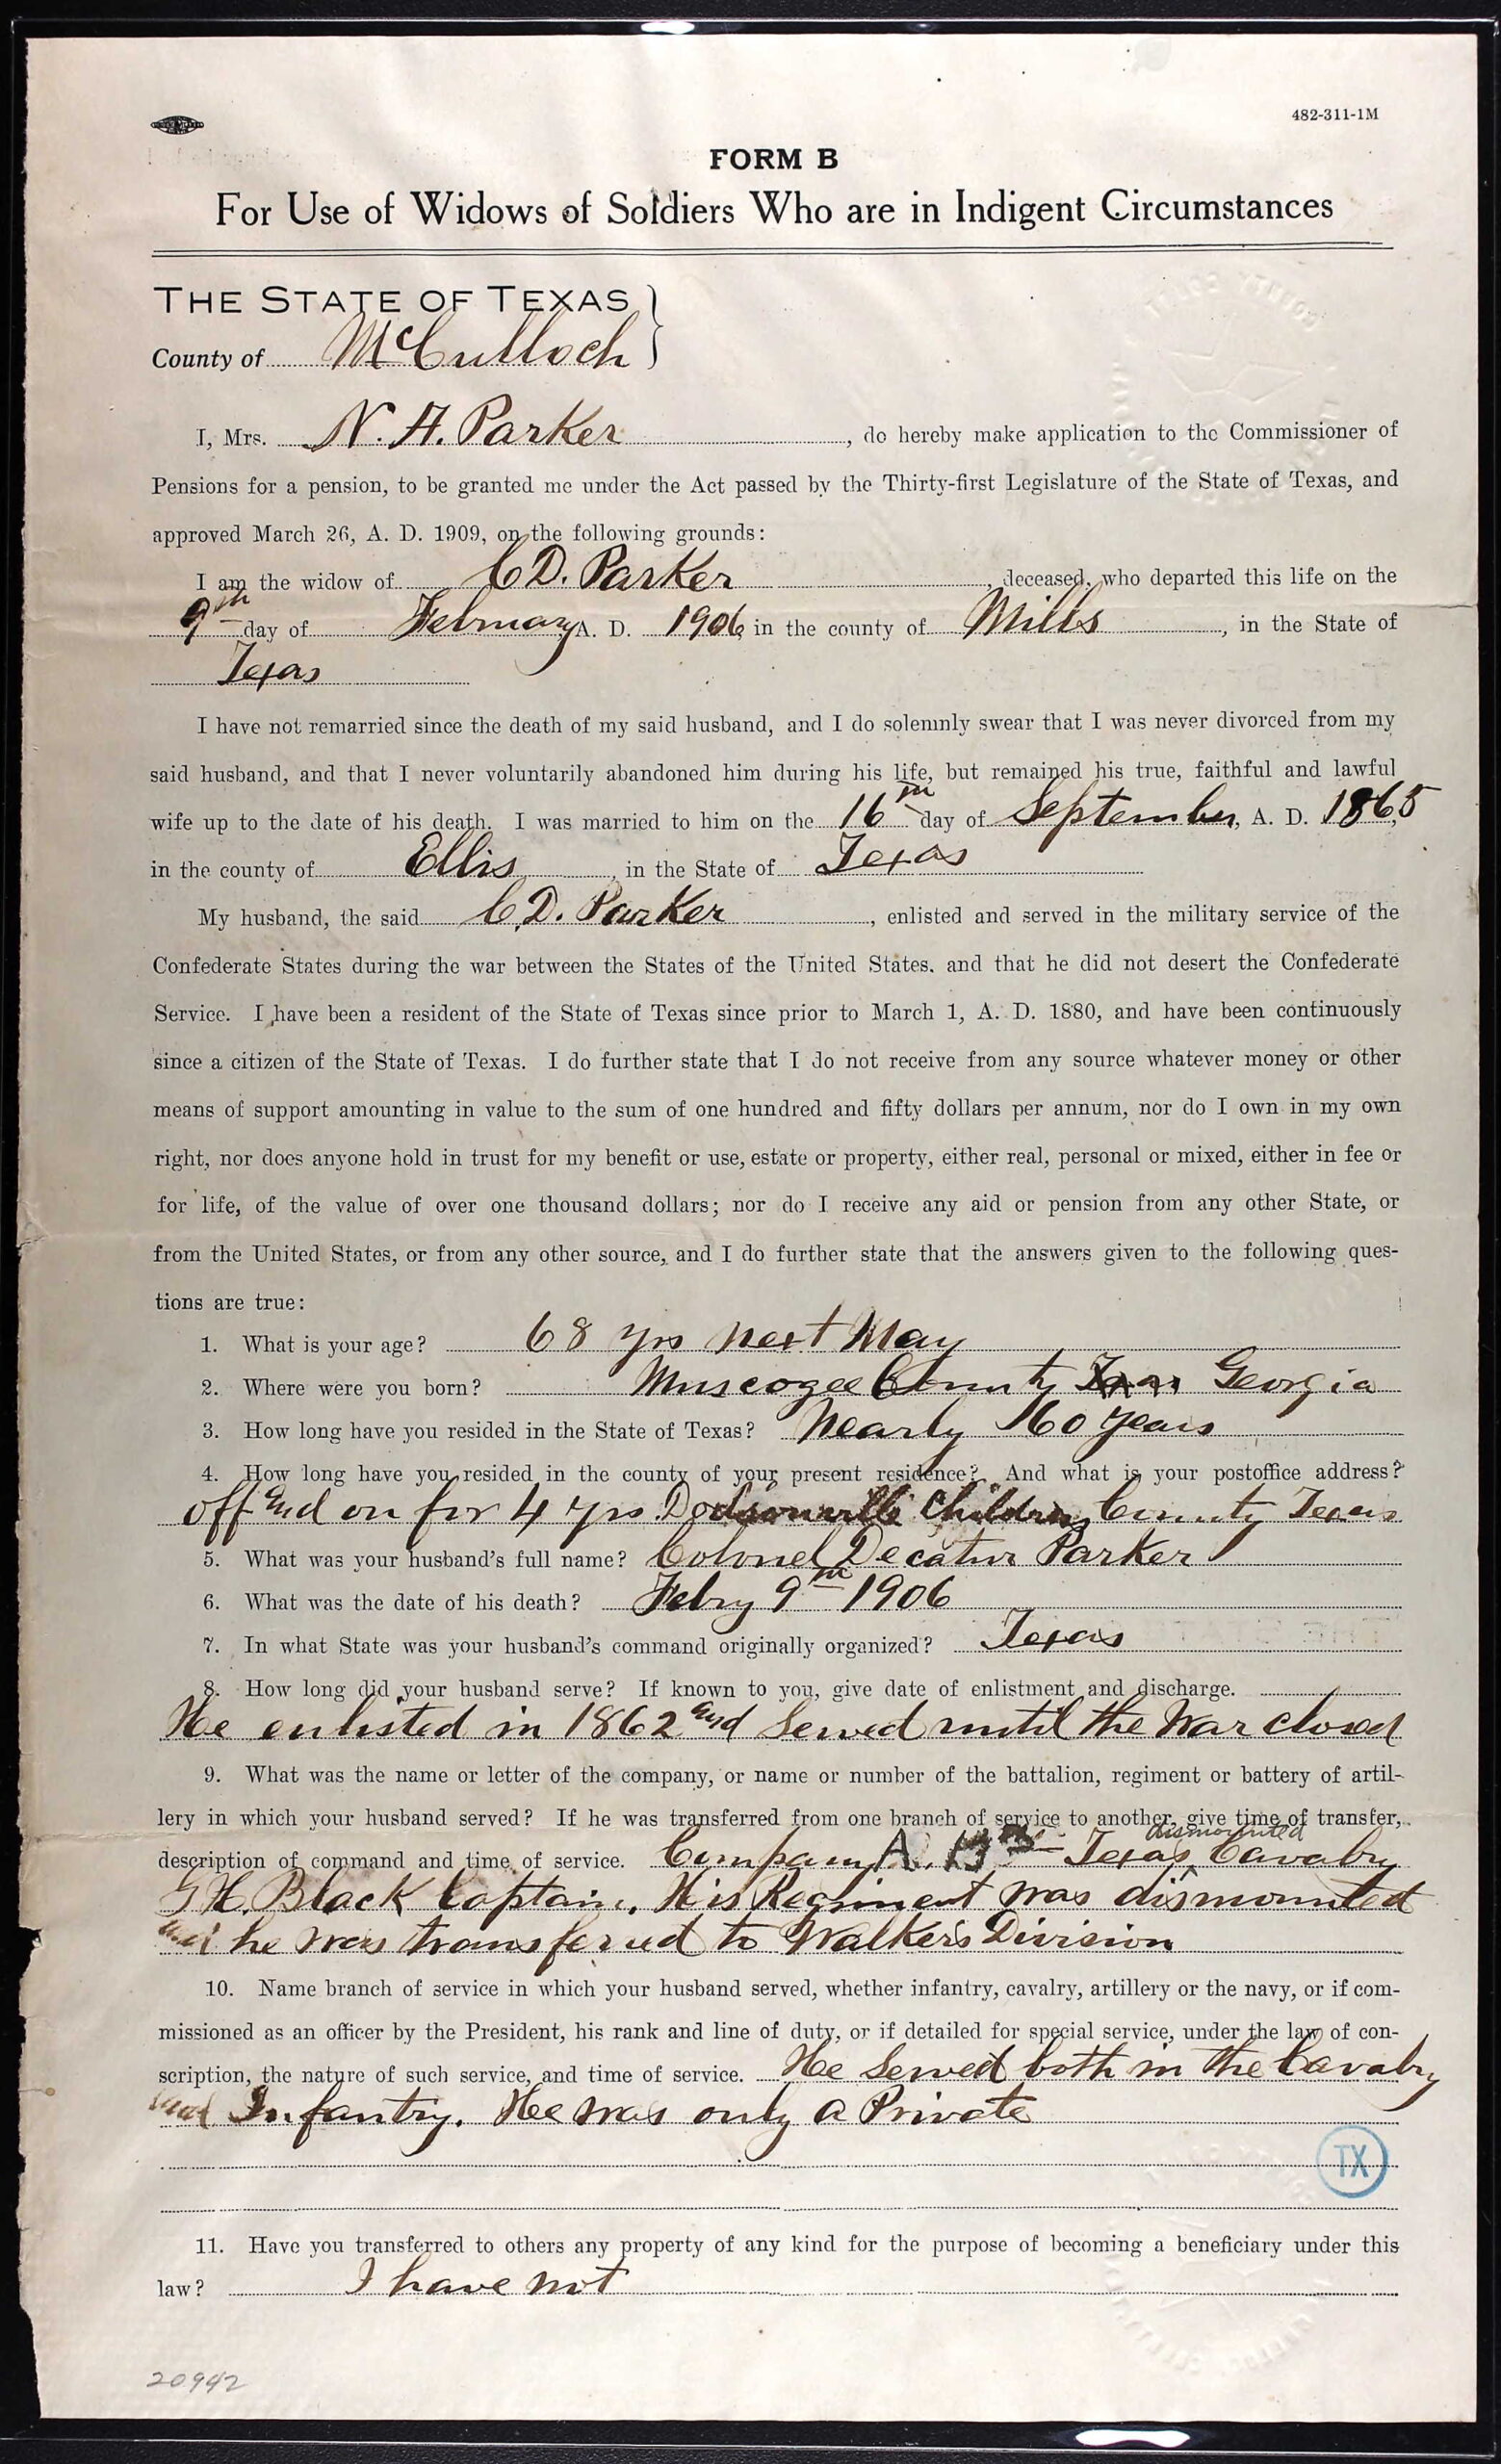 482-311-1M
FORM B
For Use of Widows of Soldiers Who are in Indigent Circumstances
THE STATE OF TEXAS }
County of McCulloch
I, Mrs. N. A. Parker, do hereby make application to the Commissioner of
Pensions for a pension, to be granted me under the Act passed by the Thirty-first Legislature of the State of Texas, and
approved March 26, A. D. 1909, on the following grounds:
I am the widow of C D. Parker, deceased, who departed this life on the
9th day of February A. D. 1906 in the county of Mills, in the State of
Texas
I have not remarried since the death of my said husband, and I do solemnly swear that I was never divorced from my
said husband, and that I never voluntarily abandoned him during his life, but remained his true, faithful and lawful
wife up to the date of his death. I was married to him on the 16th day of September, A. D. 1865
in the county of Ellis, in the State of Texas
My husband, the said C. D. Parker, enlisted and served in the military service of the
Confederate States during the war between the States of the United States, and that he did not desert the Confederate
Service. I have been a resident of the State of Texas since prior to March 1, A. D. 1880, and have been continuously
since a citizen of the State of Texas. I do further state that I do not receive from any source whatever money or other
means of support amounting in value to the sum of one hundred and fifty dollars per annum, nor do I own in my own
right, nor does anyone hold in trust for my benefit or use, estate or property, either real, personal or mixed, either in fee or
for life, of the value of over one thousand dollars; nor do I receive any aid or pension from any other State, or
from the United States, or from any other source, and I do further state that the answers given to the following ques-
tions are true:
1. What is your age? 68 yrs next May
2. Where were you born? Muscogee County Texas Georgia
3. How long have you resided in the State of Texas? Nearly 60 years
4. How long have you resided in the county of your present residence? And what is your postoffice address?
off and on for 4 yrs. Dodsonville Childress County Texas
5. What was your husband's full name? Colonel Decatur Parker
6. What was the date of his death? Febry 9th 1906
7. In what State was your husband's command originally organized? Texas
8. How long did your husband serve? If known to you, give date of enlistment and discharge.
He enlisted in 1862 and Served until the War closed
9. What was the name or letter of the company, or name or number of the battalion, regiment or battery of artil-
lery in which your husband served? If he was transferred from one branch of service to another, give time of transfer,
dismounted
description of command and time of service. Company A. Texas Cavalry
G H. Black Captain. His Regiment was dismounted
and he was transferred to Walkers Division
10. Name branch of service in which your husband served, whether infantry, cavalry, artillery or the navy, or if com-
missioned as an officer by the President, his rank and line of duty, or if detailed for special service, under the law of con-
scription, the nature of such service, and time of service. He Served both in the Cavalry
and Infantry. He was only a Private
TX
11. Have you transferred to others any property of any kind for the purpose of becoming a beneficiary under this
law? I have not
20942